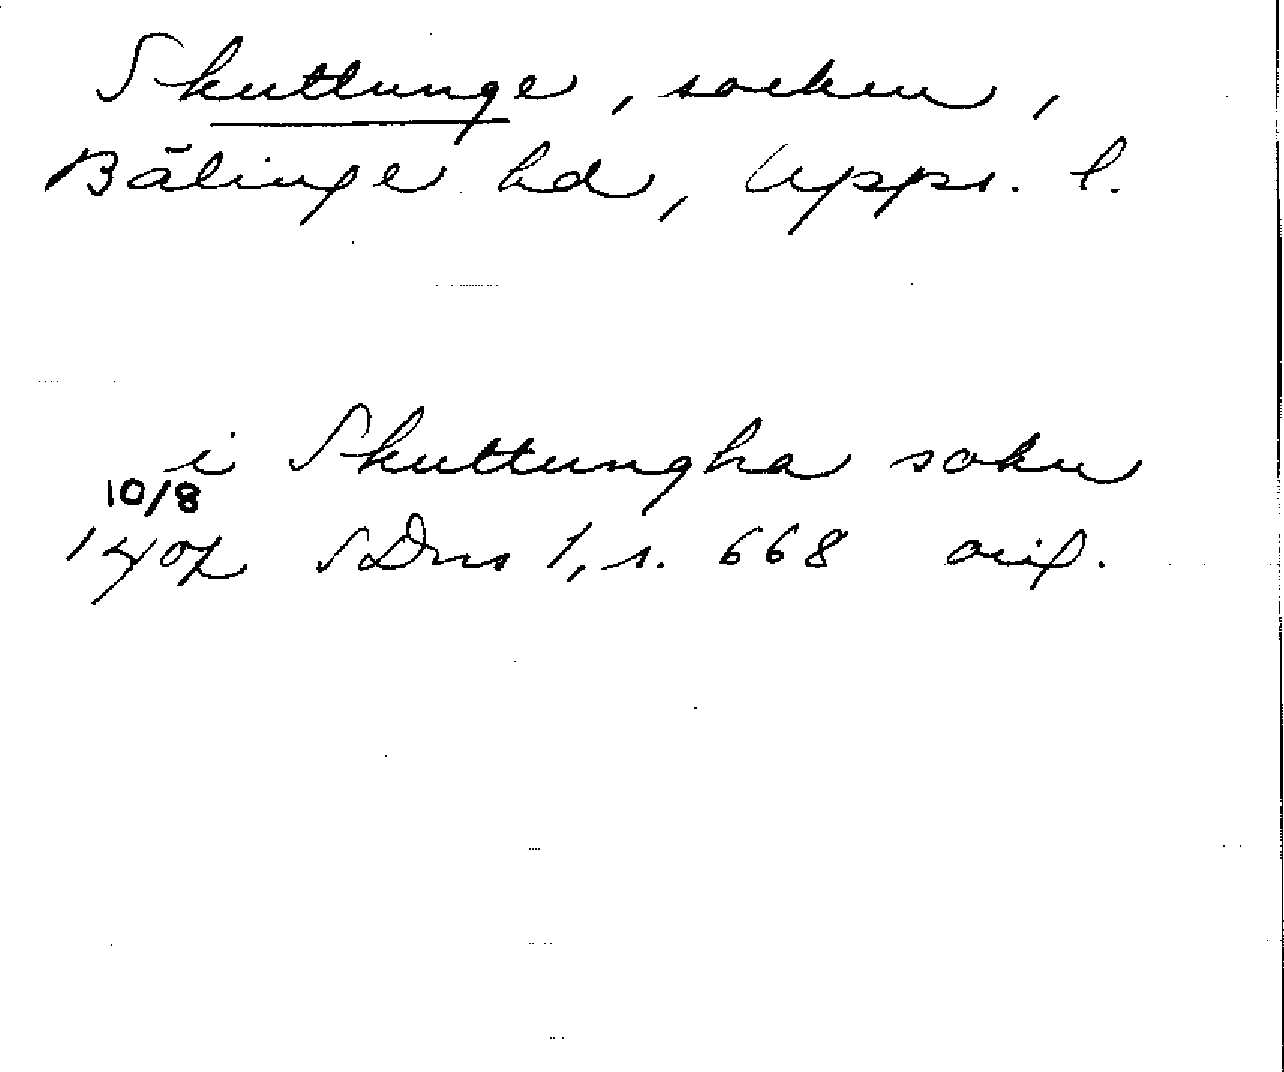 Skuttunge, socken,
Bälinge hd, Upps. l.
i Skuttungha sokn
10/8
1407 SDns 1, s. 668 orig.